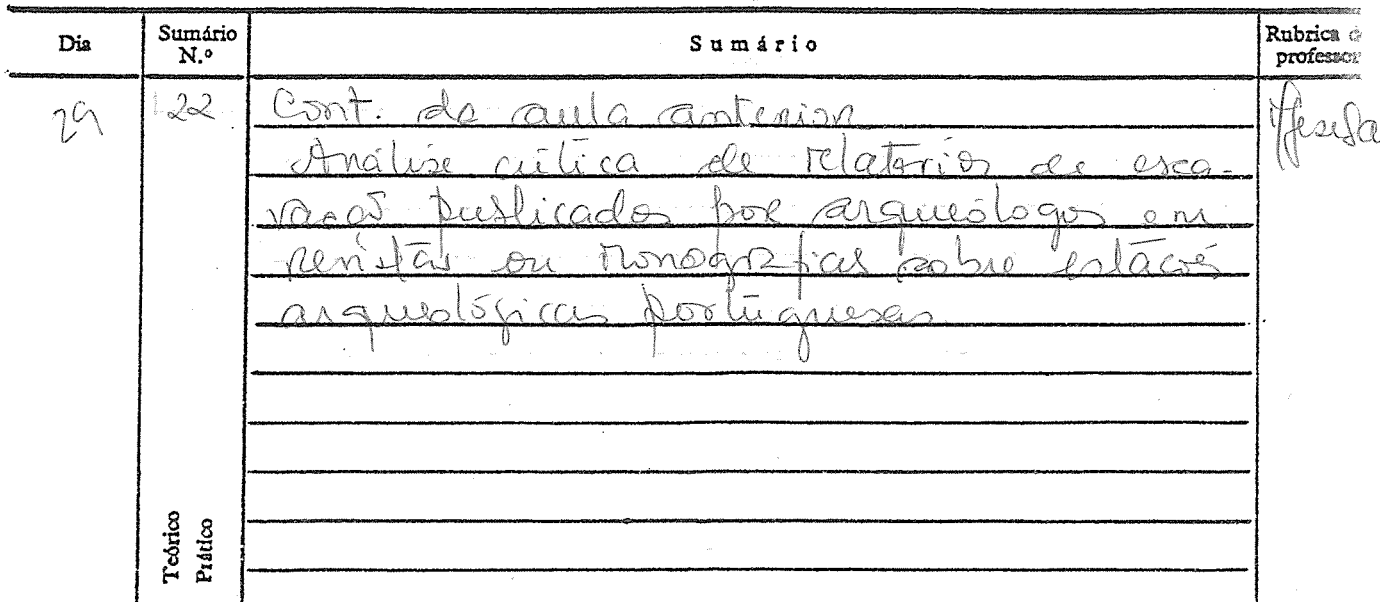 Dia Sumário N.º Sumário Rubrica d professor
29 22 Cont. da aula anterior
Análise crítica de relatórios de esca-
vação publicados por arqueólogos em
revistas ou monografias sobre estações
arqueológicas portuguesas
Teórico
Prático